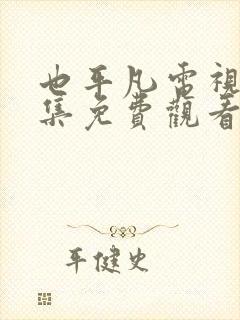 也平凡電視
集免費觀看
平健史